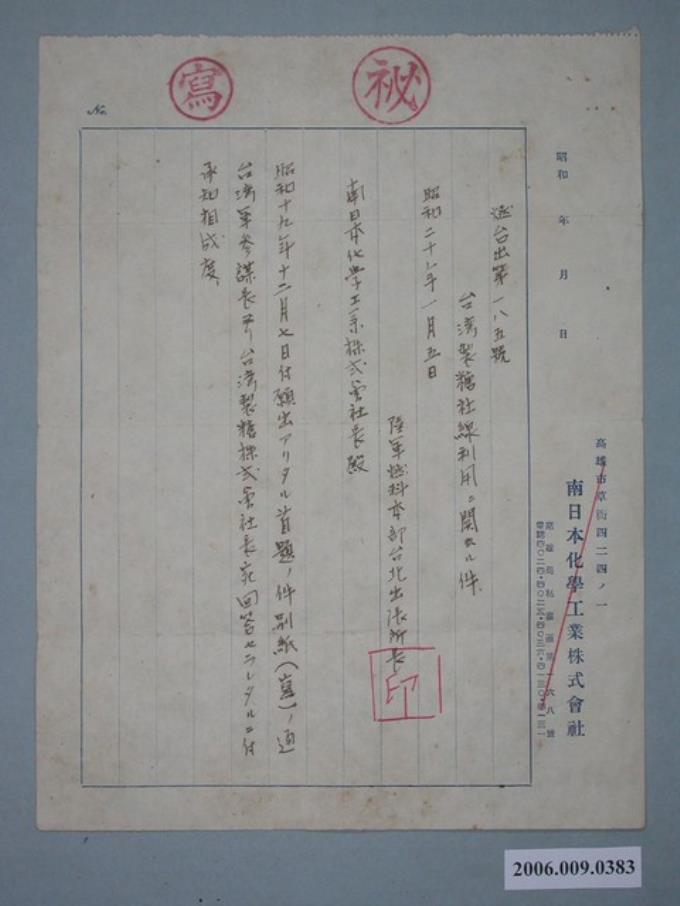 寫
祕
No.
昭和　年　月　日
高雄市草衙四二四ノ一
南日本化學工業株式會社
台出第一八五號
台湾製糖社線利用ニ関スル件
昭和二十年一月五日
陸軍燃料本部台北出張所長
印
南日本化學工業株式會社長殿
昭和十九年十二月七日付願出アリタル首題ノ件別紙(寫)ノ通
台湾軍参謀長ヨリ台湾製糖株式會社長宛回答セラレタルニ付
承知相成度
2006.009.0383